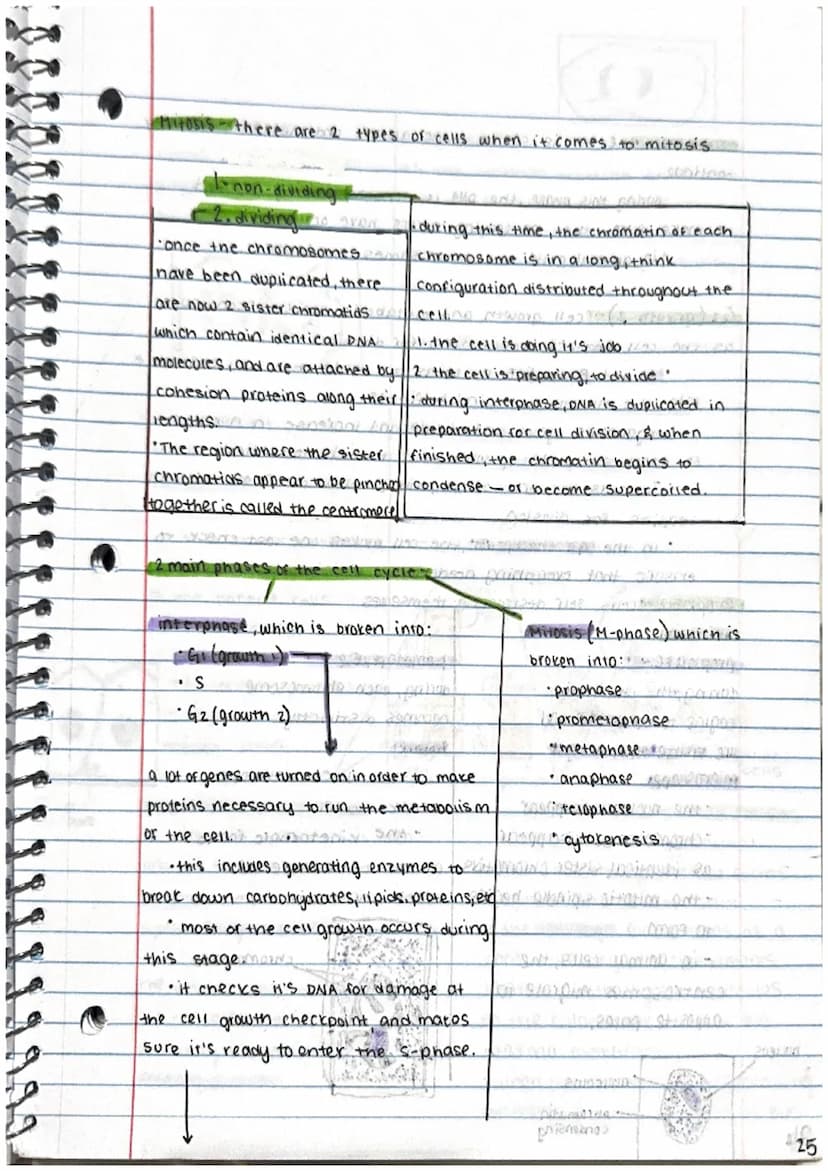 Mitosis - there are 2 types of cells when it comes to mitosis
1. non-dividing
2. dividing
·once the chromosomes
have been duplicated, there
are now 2 sister chromatids
which contain identical DNA
molecules, and are attached by
cohesion proteins along their
lengths.
·The region where the sister
chromatids appear to be pinched
together is called the centromere
·during this time, the chromatin of each
chromosome is in a long, think
configuration distributed throughout the
cell.
1. the cell is doing it's job
2. the cell is preparing to divide
·during interphase, DNA is duplicated in
preparation for cell division, & when
finished, the chromatin begins to
condense — or become supercoiled.
2 main phases of the cell cycle
interphase, which is broken into:
·G1 (growth 1)
·S
·G2 (growth 2)
a lot of genes are turned on in order to make
proteins necessary to run the metabolism
of the cell.
·this includes generating enzymes to
break down carbohydrates, lipids, proteins, etc
·most of the cell growth occurs during
this stage.
·it checks it's DNA for damage at
the cell growth checkpoint and makes
sure it's ready to enter the S-phase.
Mitosis (M-phase) which is
broken into:
·prophase
·prometaphase
·metaphase
·anaphase
·telophase
·cytokenesis
25